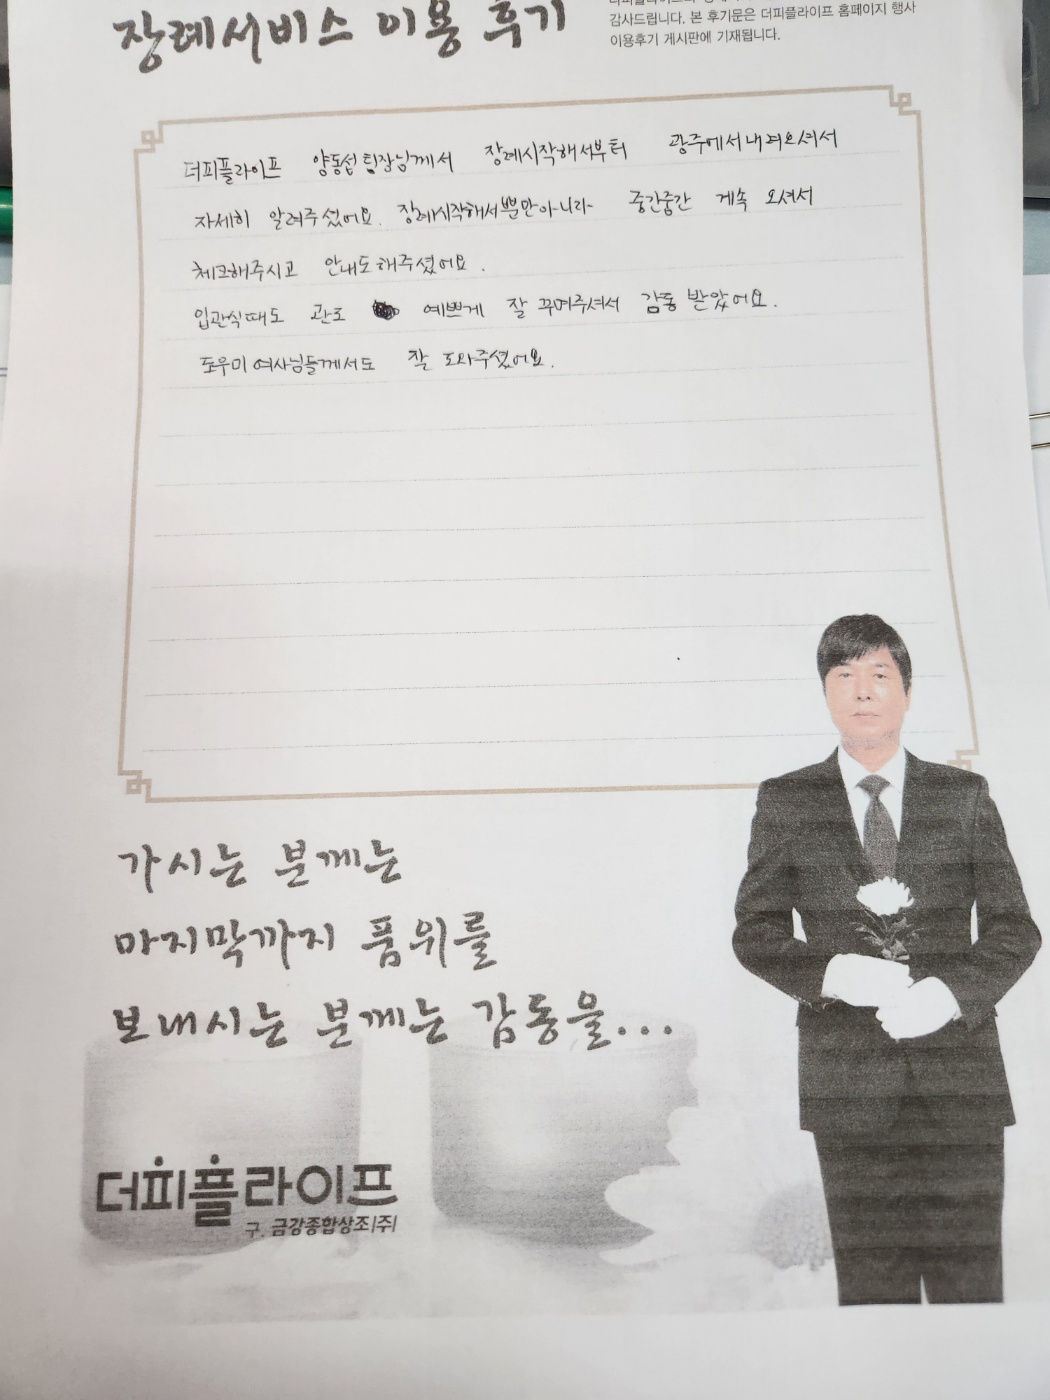 장례서비스 이용 후기
감사드립니다. 본 후기문은 더피플라이프 홈페이지 행사
이용후기 게시판에 기재됩니다.
더피플라이프 양동섭 팀장님께서 장례시작해서부터 광주에서 내려오셔서
자세히 알려주셨어요. 장례시작해서뿐만아니라 중간중간 계속 오셔서
체크해주시고 안내도 해주셨어요.
입관식때도 관도 예쁘게 잘 꾸며주셔서 감동 받았어요.
도우미 여사님들께서도 잘 도와주셨어요.
가시는 분께는
마지막까지 품위를
보내시는 분께는 감동을...
더피플라이프
구. 금강종합상조(주)